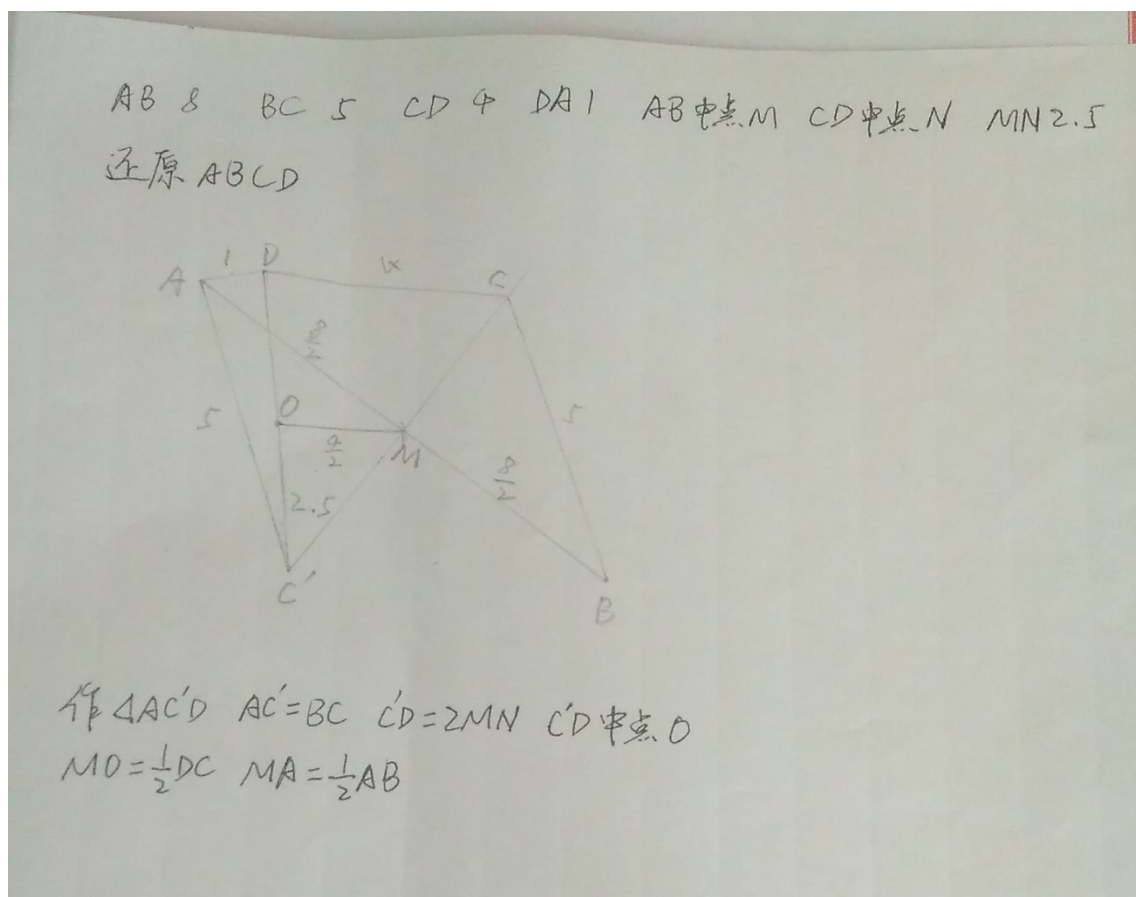 AB 8 BC 5 CD 4 DA 1 AB中点M CD中点N MN2.5
还原ABCD
A 1 D 4 C
8/2
5 O 5
4/2 M 8/2
2.5
C′
B
作△AC′D AC′=BC C′D=2MN C′D中点O
MO=1/2DC MA=1/2AB